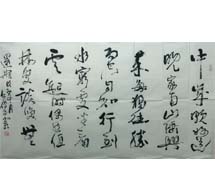 中歲頗好道
晚家南山陲興
来每獨往勝
事空自知行到
水窮處坐看
雲起時偶然值
林叟談笑無
還期